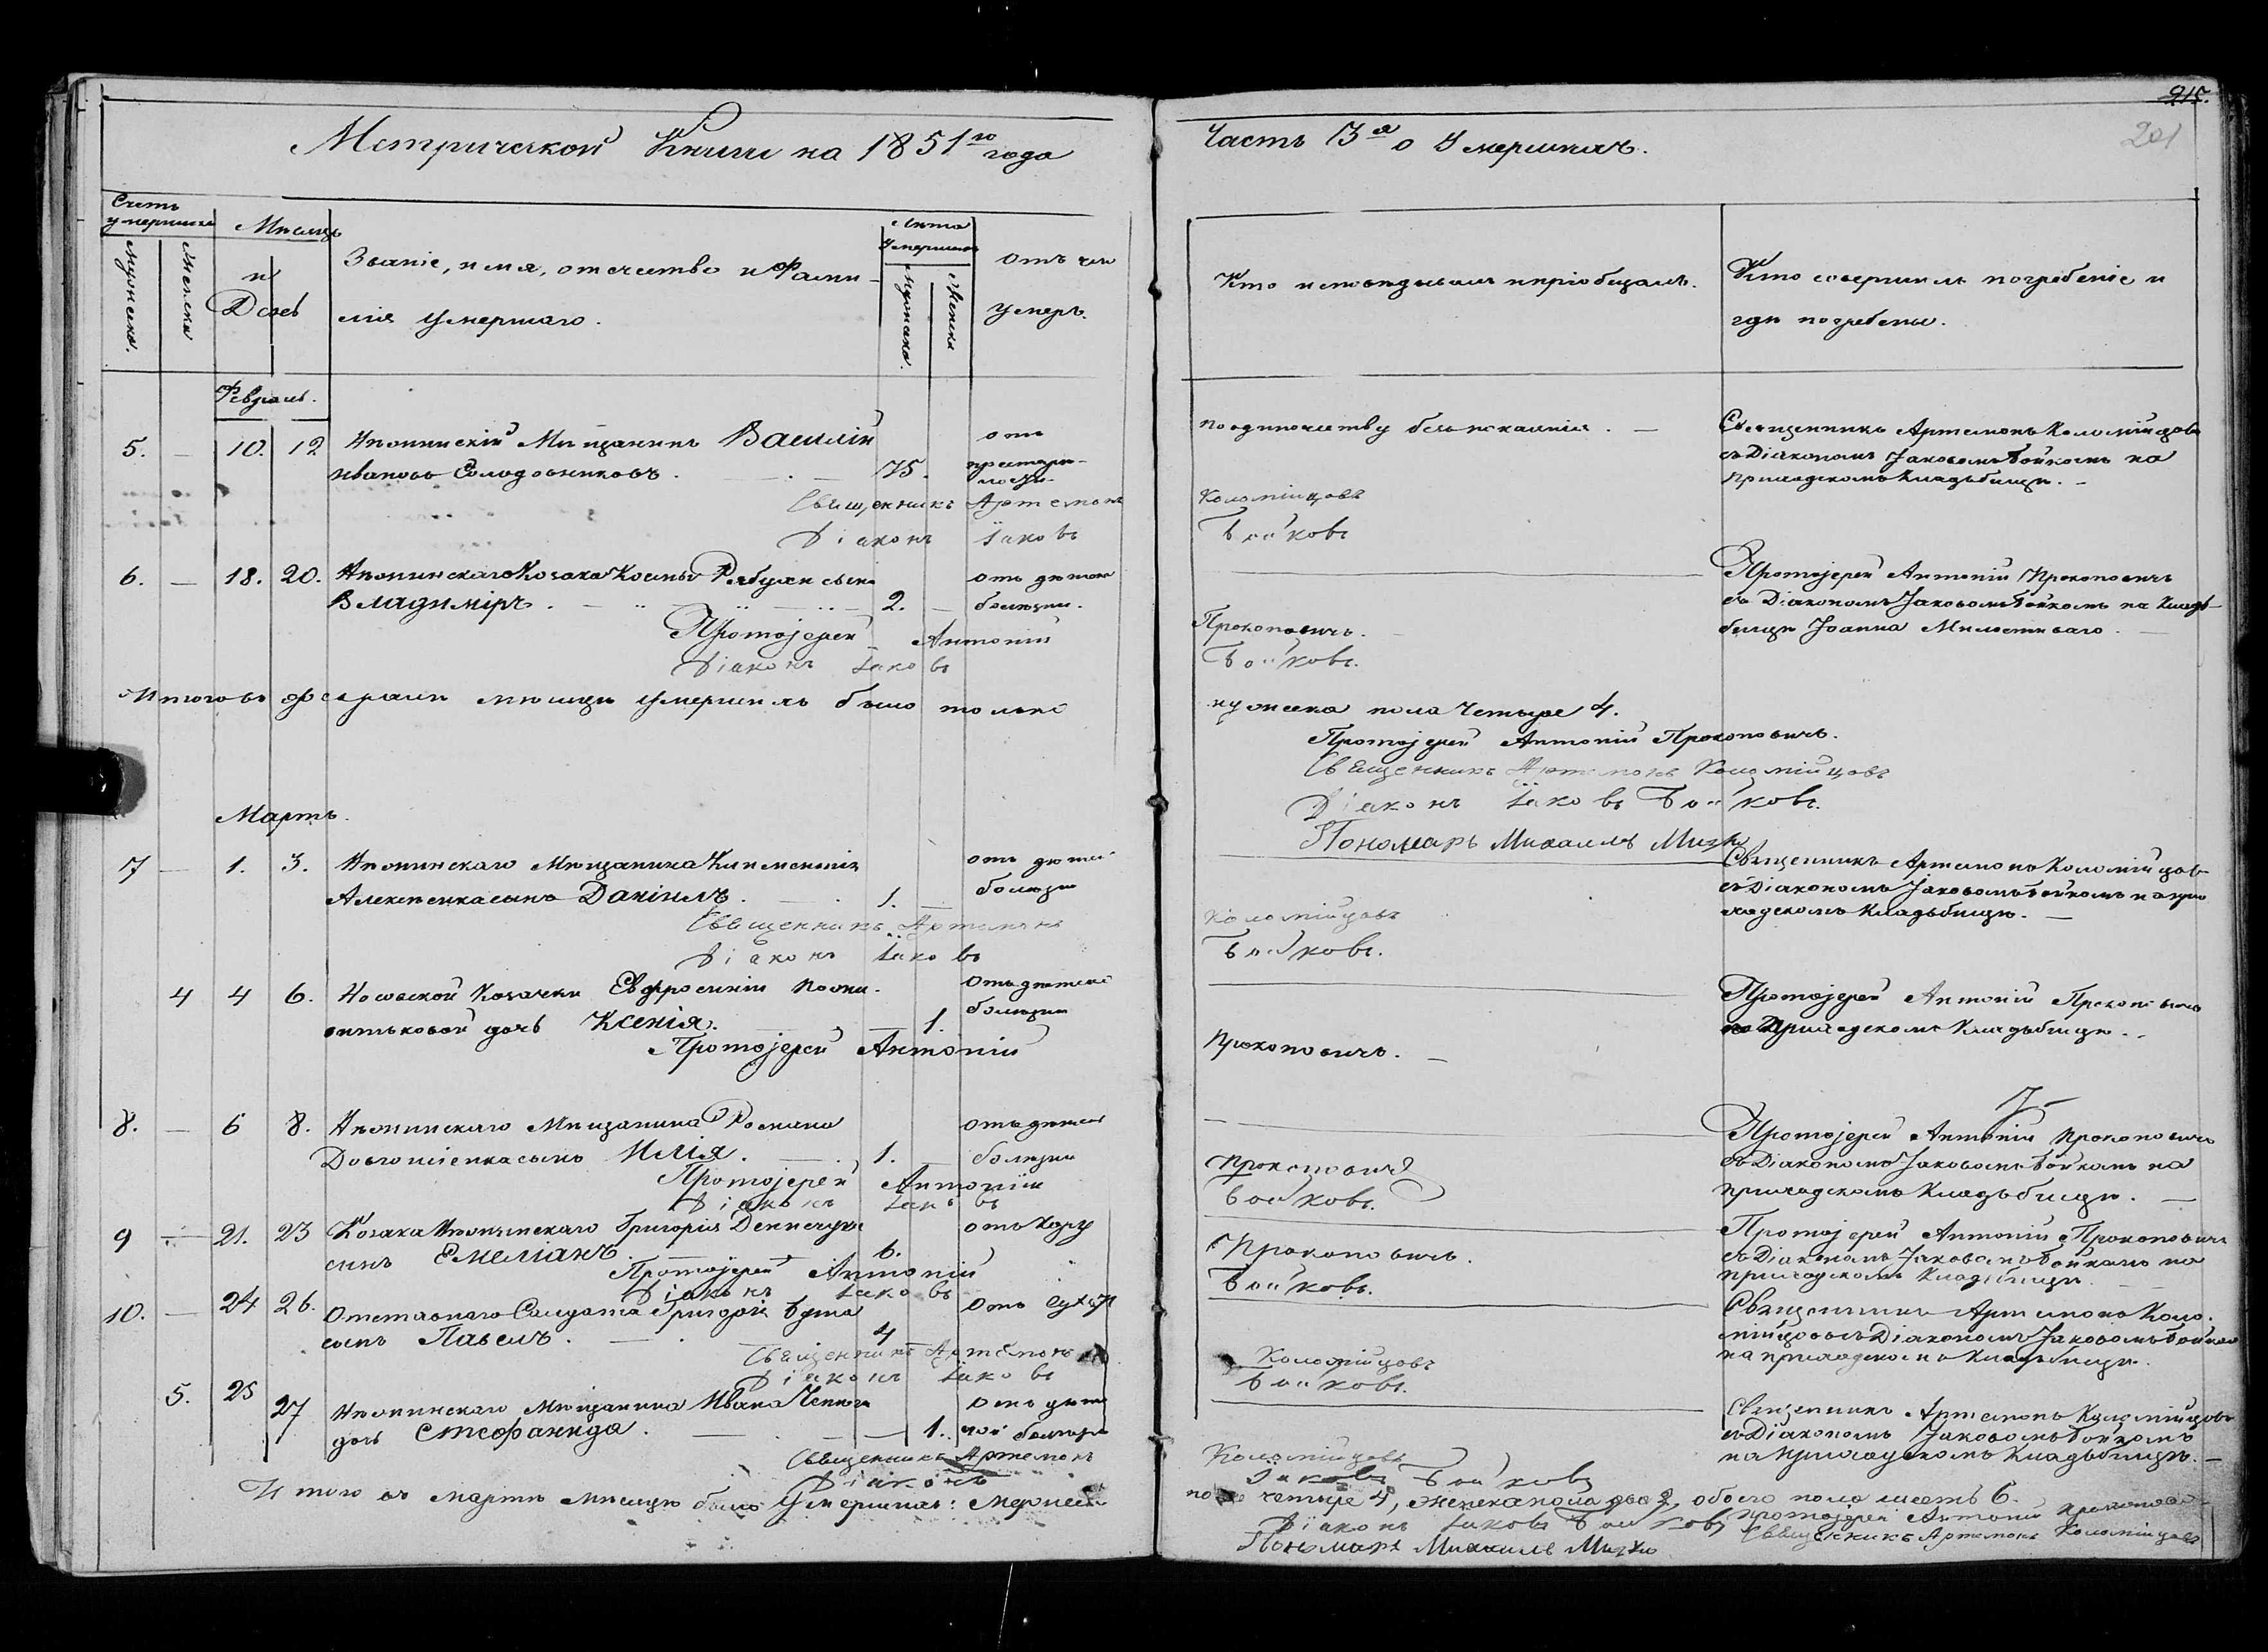 Метрической Книги на 1851го года
Счетъ умершихъ
Мужеска.
Женска
Мѣсяцъ
и
День
Званіе, имя, отчество и Фами-
лія умершаго.
Лѣта
Умершихъ
Мужеска.
Женска
Отъ чего
умеръ.
Февраль.
5. — 10. 12 Нѣжинскій Мѣщанинъ Василій отъ
Ивановъ Солодовниковъ. — 75. престарѣ-
лости
Священникъ Артемонъ
Діаконъ Іаковъ
6. — 18. 20. Нѣжинскаго Козака Космы сынъ отъ дѣтской
Владиміръ. — 2. — болѣзни.
Протоіерей Антоній
Діаконъ Іаковъ
Итого въ февралѣ мѣсяцѣ умершихъ было только
Мартъ.
7 — 1. 3. Нѣжинскаго Мѣщанина Климентія отъ дѣтской
Алексѣенка сынъ Даніилъ. — 1. — болѣзни
Священникъ Артемонъ
Діаконъ Іаковъ
4 4 6. Носовской Козачки Евфросиніи отъ дѣтской
дочь Ксенія. — 1. болѣзни
Протоіерей Антоній
8. — 6 8. Нѣжинскаго Мѣщанина Романа отъ дѣтской
сынъ Илія. — 1. — болѣзни
Протоіерей Антоній
Діаконъ Іаковъ
9 — 21. 23 Козака Нѣжинскаго Григорія отъ Кору
сынъ Емеліанъ. 6.
Протоіерей Антоній
Діаконъ Іаковъ
10. — 24 26. Отставнаго Салдата Григорія отъ
сынъ Павелъ. — 4
Священникъ Артемонъ
Діаконъ Іаковъ
5. 25 27 Нѣжинскаго Мѣщанина Ивана отъ дѣтс
дочь Стефанида. — 1. кой болѣзни
Священникъ Артемонъ
Діаконъ
Итого въ мартѣ мѣсяцѣ было Умершихъ: мужеска
215.
201
Часть 3я о Умершихъ.
Кто исповѣдывалъ и пріобщалъ.
Кто совершилъ погребеніе и
гдѣ погребены.
по одиночеству безъ покаянія. —
Священникъ Артемонъ Коломійцовъ
съ Діакономъ Іаковомъ Бойкомъ на
приходскомъ Кладбищѣ. —
Коломійцовъ
Бойковъ
Протоіерей Антоній Прокоповичъ
съ Діакономъ Іаковомъ Бойкомъ на Клад-
бищѣ Іоанна Милостиваго. —
Прокоповичъ.
Бойковъ.
мужеска пола четыре 4.
Протоіерей Антоній Прокоповичъ.
Священникъ Артемонъ Коломійцовъ
Діаконъ Іаковъ Бойковъ.
Пономарь Михаилъ
Священникъ Артемонъ Коломійцовъ
съ Діакономъ Іаковомъ Бойкомъ на при
ходскомъ Кладбищѣ. —
Коломійцовъ
Бойковъ.
Протоіерей Антоній Прокоповичъ
на Приходскомъ Кладбищѣ. —
Прокоповичъ. —
Протоіерей Антоній Прокоповичъ
съ Діакономъ Іаковомъ Бойкомъ на
приходскомъ Кладбищѣ. —
Прокоповичъ
Бойковъ.
Протоіерей Антоній Прокоповичъ
съ Діакономъ Іаковомъ Бойкомъ на
приходскомъ Кладбищѣ. —
Прокоповичъ.
Бойковъ.
Священникъ Артемонъ Коло-
мійцовъ съ Діакономъ Іаковомъ Бойкомъ
на приходскомъ Кладбищѣ.
Коломійцовъ
Бойковъ.
Священникъ Артемонъ Коломійцовъ
съ Діакономъ Іаковомъ Бойкомъ
на приходскомъ Кладбищѣ. —
Коломійцовъ
Іаковъ Бойковъ
пола четыре 4, женска пола два 2, обоего пола шесть 6.
Протоіерей Антоній Прокопович
Діаконъ Іаковъ Бойковъ Священникъ Артемонъ Коломійцовъ
Пономарь Михаилъ